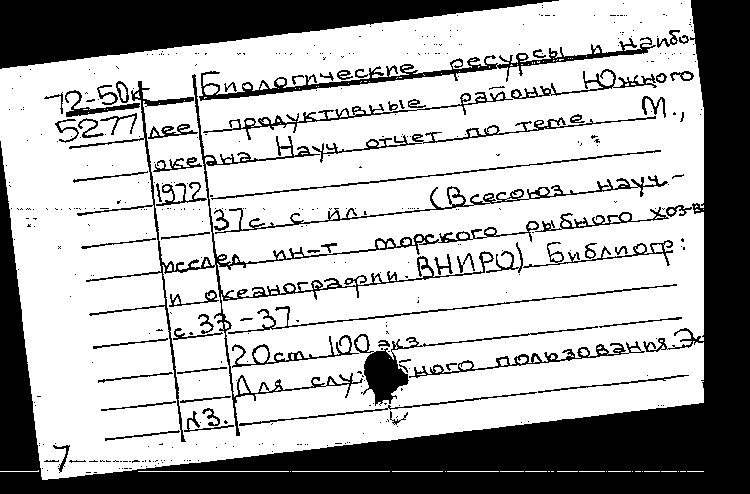 72-50к Биологические ресурсы и наибо-
5277 лее продуктивные районы Южного
океана. Науч. отчет по теме. М.,
1972.
37с. с ил. (Всесоюз. науч.-
исслед. ин-т морского рыбного хоз-ва
и океанографии. ВНИРО). Библиогр:
с. 33-37.
20см. 100 экз.
Для служебного пользования. Эк
№3.
7